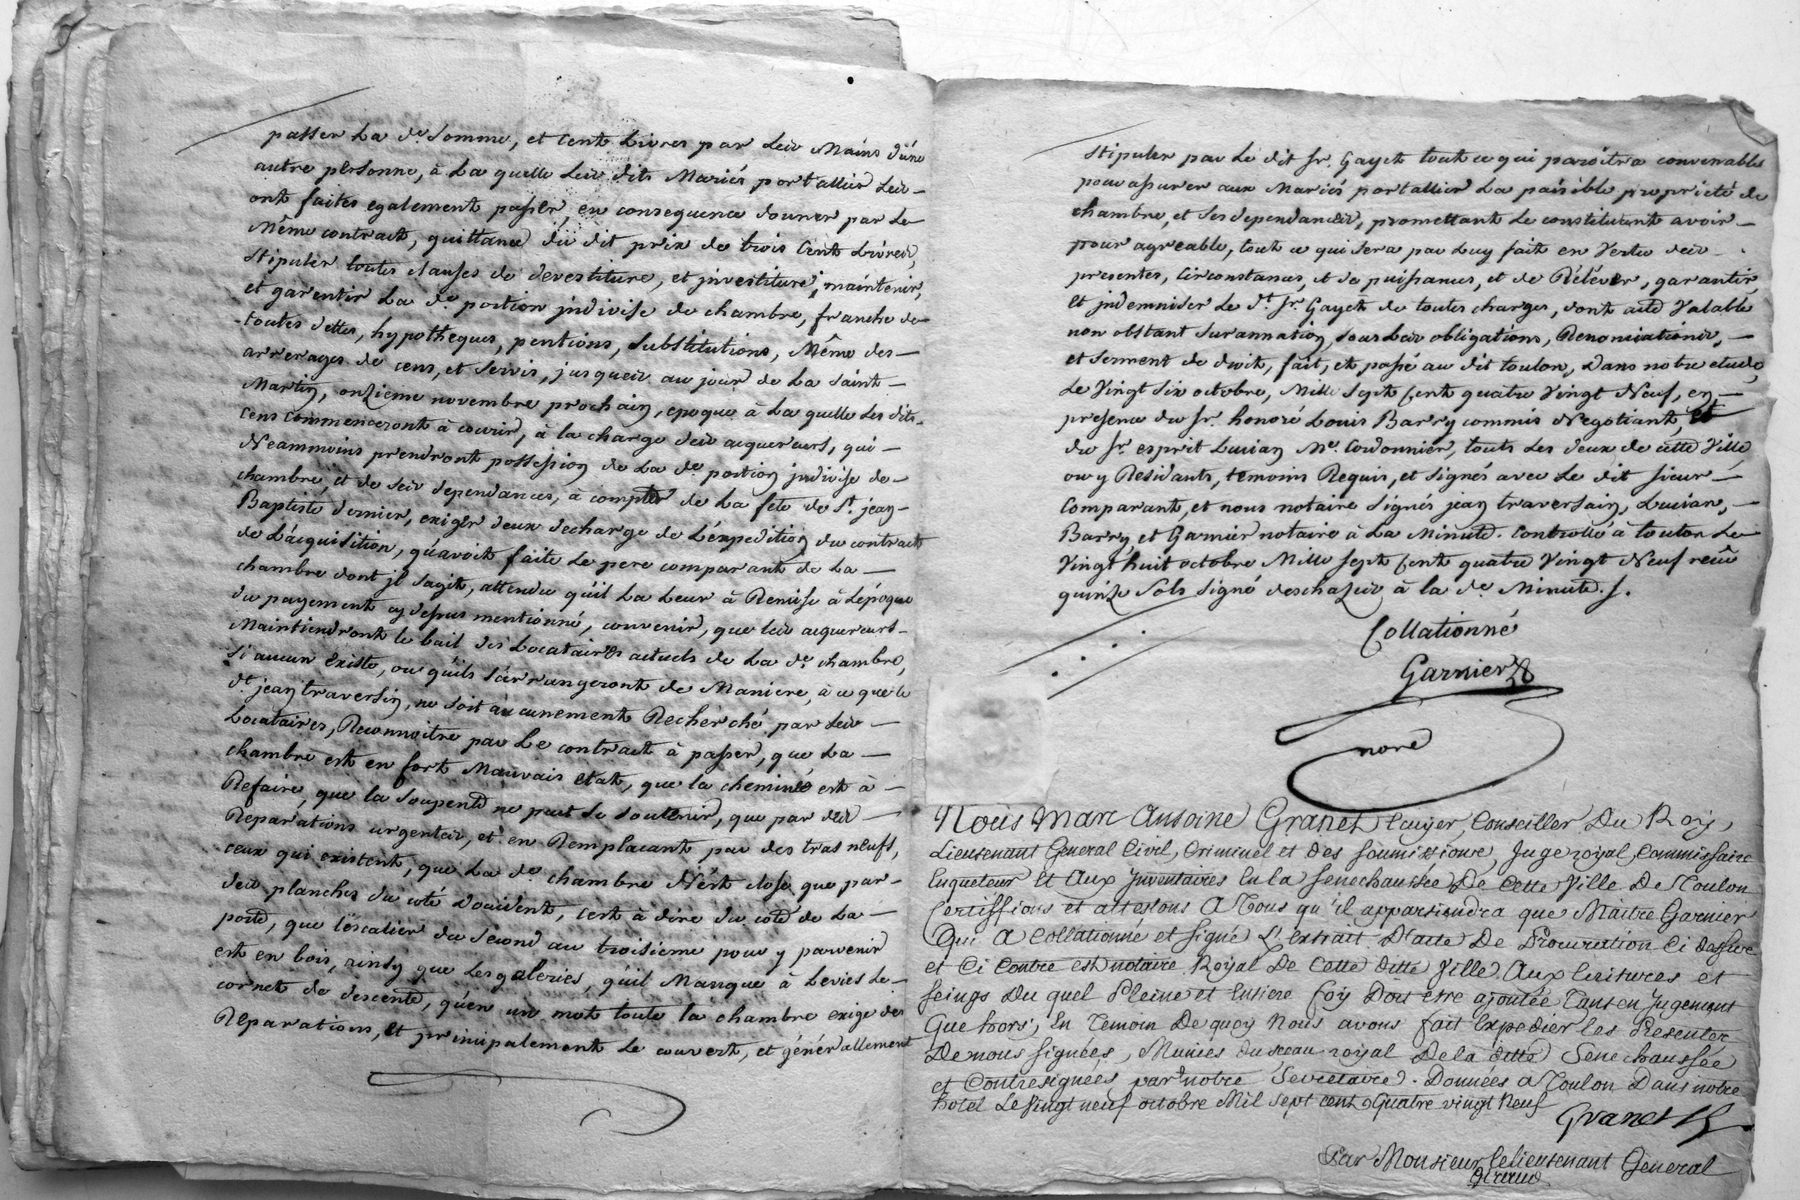 passer La de. Somme, et Cent Livres par Les Mains d'une
autre personne, à La quelle Les dits Mariés portallier Les
ont faites egalement passer, en consequence donner par Le
Même contract, quittance du dit prix de trois Cent Livres,
Stipuler toutes clauses de devestiture, et jnvestiture, maintenir,
et garentir La de. portion jndivise de chambre, franche de
toutes dettes, hypotheques, pentions, Substitutions, Même des
arrerages de cens, et servis, jusques au jour de La Saint
Martin, onzieme novembre prochain, epoque à La quelle Les dits
cens commenceront à courir, à la charge des acquereurs, qui
Neammoins prendront possession de La de. portion jndivise de
chambre, et de ses dependances, à compter de La fete de St. jean
Baptiste dernier, exiger deux decharge de L'expedition du contract
de L'acquisition, qu'avoit faite Le pere comparant de La
chambre dont jl s'agit, attendu qu'il La Leur à Remise à L'époque
du payement cy dessus mentionné, convenir, que les acquereurs
Maintiendront le bail des Locataires actuels de La de. chambre,
Si aucun existe, ou qu'ils s'arrangeront de Maniere, à ce que le
dt. jean traversin, ne soit aucunement Recherché par Les
Locataires, Reconnoitre par Le contract à passer, que La
chambre est en fort Mauvais etat, que la cheminée est à
Refaire, que la soupente ne peut se soutenir, que par des
Reparations urgentes, et en Remplacant par des tras neufs,
ceux qui existent, que La de. chambre N'est close que par
des planches du coté d'occident, c'est à dire du coté de La
porte, que L'escalier du Second au troisieme pour y parvenir
est en bois, ainsy que Les galeries, qu'il Manque à L'evier Le
cornet de descente, qu'en un mot toute la chambre exige des
Reparations, et principalement Le couvert, et générallement
Stipuler par Le dit Sr. Gayet tout ce qui paroitra convenable
pour assurer aux Mariés portallier La paisible proprieté de
chambre, et ses dependances, promettant Le constituant avoir
pour agreable, tout ce qui sera par Luy fait en Vertu des
presentes, Circonstances, et de puissances, et de Rélever, garantir,
et jndemniser Le dt. Sr. Gayet de toutes charges, dont acte Valable
non obstant surannation, sous Les obligations, Renonciations,
et serment de droit, fait, et passé au dit toulon, Dans notre etude,
Le Vingt Six octobre, Mille Sept Cent quatre Vingt Neuf, en
presence du Sr. honoré Louis Barry commis Negotiant, et
du Sr. esprit Lucian Me. Cordonnier, touts Les deux de cette Ville,
ou y Residants, temoins Requis, et signés avec Le dit sieur
Comparant, et nous notaire signés jean traversain, Lucian,
Barry et Garnier notaire à La Minute. Controllé à toulon Le
Vingt huit octobre Mille Sept Cent quatre Vingt Neuf reçu
quinze Sols signé deschazes à la de. Minute.
Collationné
Garnier
nore
Nous Marc Antoine Granet Ecuyer, Conseiller Du Roy,
Lieutenant General Civil, Criminel et des soumissions, Juge royal, Commissaire
Enqueteur et aux Jnventaires En la Senechaussée De Cette Ville De Toulon
Certiffions et attestons A Tous qu'il appartiendra que Maitre Garnier
Qui A Collationné et signé L'extrait D'acte De Procuration Ci dessus
et Ci Contre est notaire Royal De Cette ditte Ville Aux Ecritures et
Seings Du quel Pleine et Entiere foy Doit etre ajoutée Tant en Jugement
Que hors; En Temoin De quoy Nous avons fait Expedier les Presentes
De nous signées, Munies du sceau royal De la ditte Senechaussée
et Contresignées par notre Secretaire. Données A Toulon Dans notre
hotel Le Vingt neuf octobre Mil sept cent Quatre vingt Neuf
Granet
Par Monsieur le lieutenant General